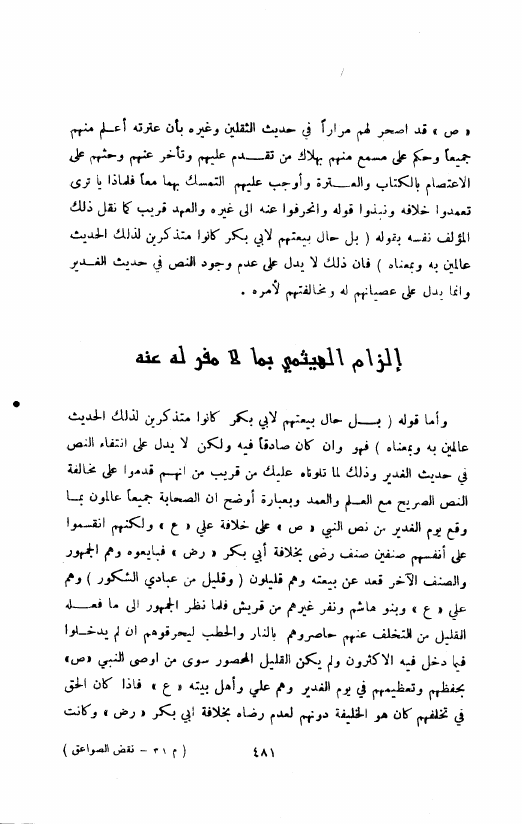 « ص » قد اصحر لهم مراراً في حديث الثقلين وغيره بأن عترته أعلم منهم
جميعاً وحكم على مسمع منهم بهلاك من تقدم عليهم وتأخر عنهم وحثهم على
الاعتصام بالكتاب والعترة وأوجب عليهم التمسك بهما معاً فلماذا يا ترى
تعمدوا خلافه ونبذوا قوله وانحرفوا عنه الى غيره والعهد قريب كما نقل ذلك
المؤلف نفسه بقوله ( بل حال بيعتهم لابي بكر كانوا متذكرين لذلك الحديث
عالمين به وبمعناه ) فان ذلك لا يدل على عدم وجود النص في حديث الغدير
وانما يدل على عصيانهم له ومخالفتهم لأمره .
إلزام الهيثمي بما لا مفر له عنه
وأما قوله ( بل حال بيعتهم لابي بكر كانوا متذكرين لذلك الحديث
عالمين به وبمعناه ) فهو وان كان صادقاً فيه ولكن لا يدل على انتفاء النص
في حديث الغدير وذلك لما تلوناه عليك من قريب من انهم قدموا على مخالفة
النص الصريح مع العلم والعمد وبعبارة أوضح ان الصحابة جميعاً عالمون بما
وقع يوم الغدير من نص النبي « ص » على خلافة علي « ع » ولكنهم انقسموا
على أنفسهم صنفين صنف رضى بخلافة أبي بكر « رض » فبايعوه وهم الجمهور
والصنف الآخر قعد عن بيعته وهم قليلون ( وقليل من عبادي الشكور ) وهم
علي « ع » وبنو هاشم ونفر غيرهم من قريش فلما نظر الجمهور الى ما فعله
القليل من التخلف عنهم حاصروهم بالنار والحطب ليحرقوهم ان لم يدخلوا
فيما دخل فيه الاكثرون ولم يكن القليل المحصور سوى من اوصى النبي «ص»
بحفظهم وتعظيمهم في يوم الغدير وهم علي وأهل بيته « ع » فاذا كان الحق
في تخلفهم كان هو الخليفة دونهم لعدم رضاه بخلافة ابي بكر « رض » وكانت
٤٨١
( م ٣١ – نقض الصواعق )